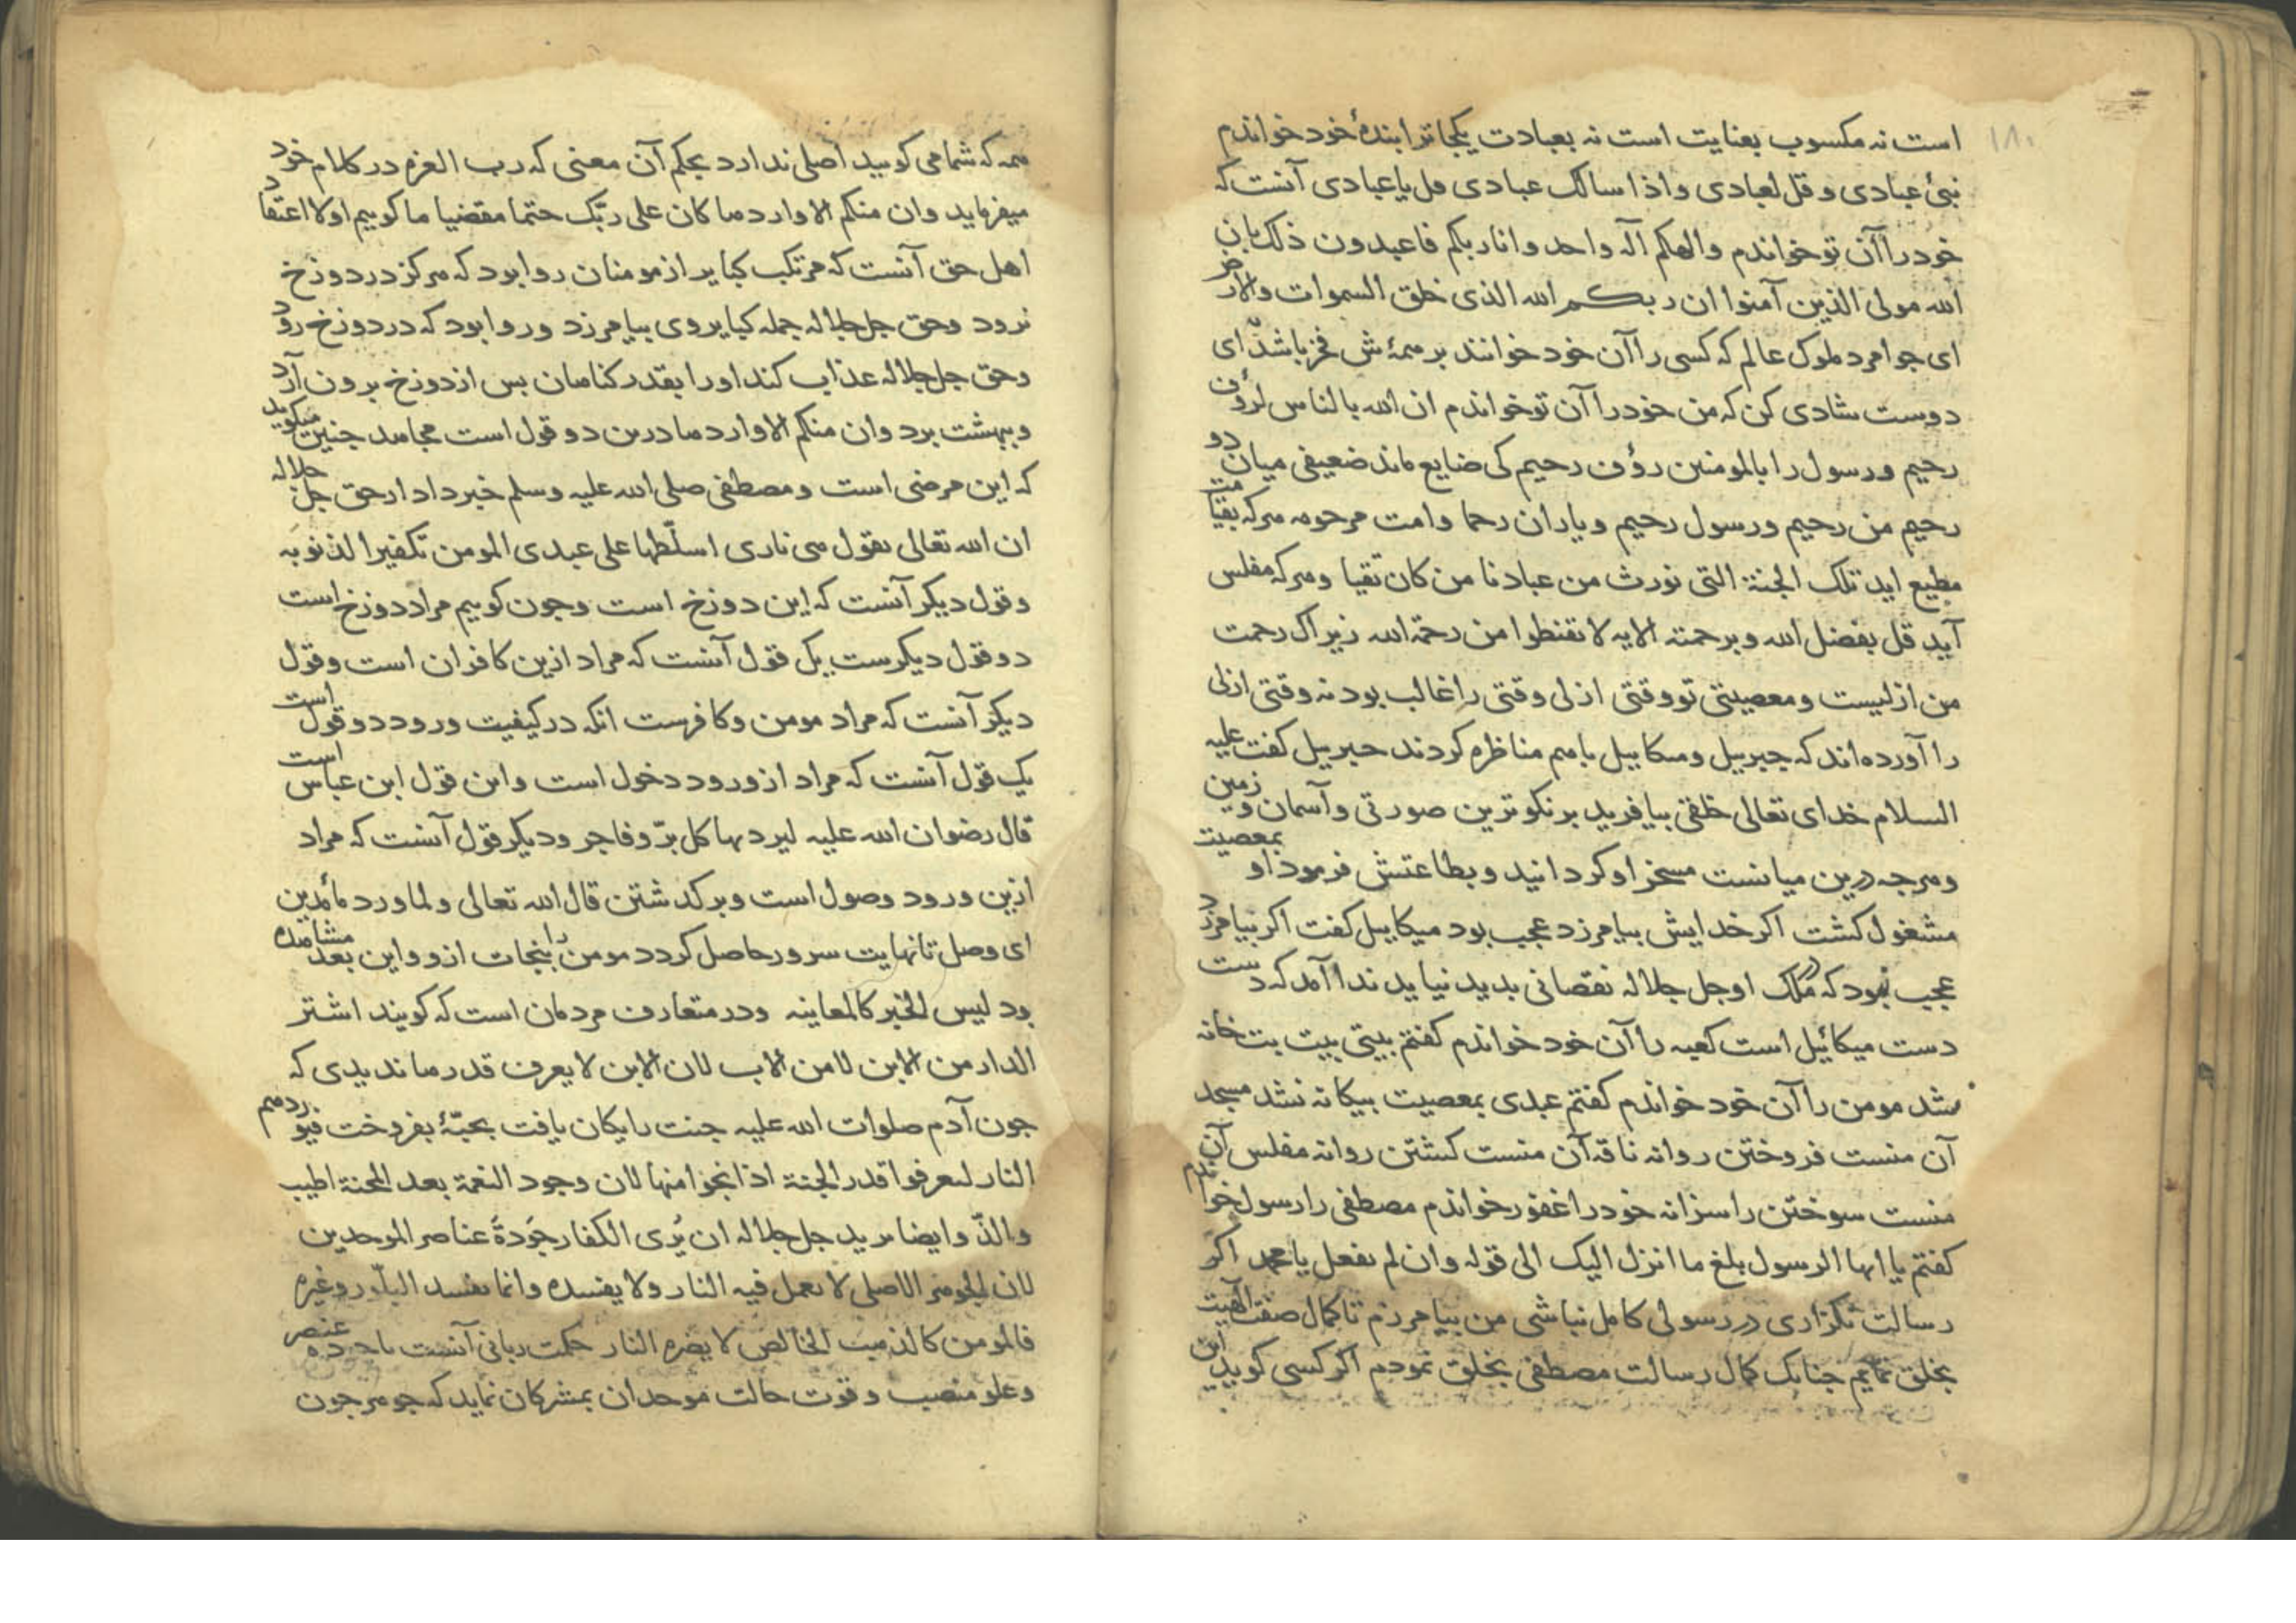 ۱۸۰
است نه مکسوب بعنایت است نه بعبادت یکجا ترا بندهٔ خود خواندم
نبئ عبادی و قل لعبادی و اذا سالک عبادی قل یا عبادی آنست که
خود را آن تو خواندم و الهکم اله واحد و انا ربکم فاعبدون ذلک بان
الله مولی الذین آمنوا ان ربکم الله الذی خلق السموات والارض
ای جوامرد ملوک عالم که کسی را آن خود خوانند بر همهٔ ش فخر باشد ای
دوست شادی کن که من خود را آن تو خواندم ان الله بالناس لرؤف
رحیم و رسول را بالمومنین رؤف رحیم کی ضایع ماند ضعیفی میان دو
رحیم من رحیم و رسول رحیم و یاران رحما و امت مرحومه هرکه بقیامت
مطیع اید تلک الجنة التی نورث من عبادنا من کان تقیا و هرکه مفلس
آید قل بفضل الله و برحمته الایه لا تقنطوا من رحمة الله زیراک رحمت
من ازلیست و معصیتی تو وقتی ازلی وقتی را غالب بود نه وقتی ازلی
را آورده‌اند که جبریل و میکاییل باهم مناظره کردند جبریل کفت علیه
السلام خدای تعالی خلقی بیافرید بر نکوترین صورتی و آسمان و زمین
و هرجه درین میانست مسخر او کردانید و بطاعتش فرمود او بمعصیت
مشغول کشت اکر خدایش بیامرزد عجب بود میکاییل کفت اکر نیامرزد
عجب نبود که در ملک او جل جلاله نقصانی بدید نیاید ندا آمد که دست
دست میکائیل است کعبه را آن خود خواندم کفتم بیتی بیت بت خانه
نشد مومن را آن خود خواندم کفتم عبدی بمعصیت بیکانه نشد مسجد
آن منست فروختن روا نه ناقه آن منست کشتن روا نه مفلس آن
منست سوختن را سزا نه خود را غفور خواندم مصطفی را رسول خواندم
کفتم یا ایها الرسول بلغ ما انزل الیک الی قوله و ان لم تفعل یا محمد اکر
رسالت نکزاری در رسولی کامل نباشی من بیامرزم تا کمال صفت الهیت
بخلق نمایم جنانک کمال رسالت مصطفی بخلق نمودم اکر کسی کوید این
همه که شما می کویید اصلی ندارد بحکم آن معنی که رب العزه در کلام خود
میفرماید و ان منکم الا واردها کان علی ربّک حتما مقضیا ما کوییم اولا اعتقاد
اهل حق آنست که مرتکب کبایر از مومنان روا بود که هرکز در دوزخ
نرود و حق جل جلاله جمله کبایر وی بیامرزد و روا بود که در دوزخ رود
و حق جل جلاله عذاب کند او را بقدر کناهان بس از دوزخ برون آرد
و ببهشت برد و ان منکم الا واردها درین دو قول است مجاهد جنین میکوید
که این مرضی است و مصطفی صلی الله علیه وسلم خبر داد از حق جل جلاله
ان الله تعالی یقول هی ناری اسلّطها علی عبدی المومن تکفیرا لذنوبه
و قول دیکر آنست که این دوزخ است و جون کوییم مراد دوزخ است
دو قول دیکرست یک قول آنست که مراد ازین کافران است و قول
دیکر آنست که مراد مومن و کافرست انکه در کیفیت ورود دو قول است
یک قول آنست که مراد از ورود دخول است و این قول ابن عباس است
قال رضوان الله علیه لیردنها کل برّ و فاجر و دیکر قول آنست که مراد
ازین ورود وصول است و برکدشتن قال الله تعالی و لما ورد ماء مدین
ای وصل تا نهایت سرور حاصل کردد مومن را بنجات ازو و این بعد مشاهده
بود لیس الخبر کالمعاینه و در متعارف مردمان است که کویند اشتر
الدار من الابن لا من الاب لان الابن لا یعرف قدرها ندیدی که
جون آدم صلوات الله علیه جنت رایکان یافت بحبّهٔ بفروخت فیوردهم
النار لیعرفوا قدر الجنة اذا نجوا منها لان وجود النعمة بعد المحنة اطیب
و الذّ و ایضا یرید جل جلاله ان یُری الکفار جَودَةَ عناصر الموحدین
لان الجوهر الاصلی لا یعمل فیه النار و لا یفسده و انما یفسد البلّور و غیره
فالمومن کالذهب الخالص لا یضره النار حکمت ربانی آنست تا جوده عنصر
و علو منصب و قوت حالت موحدان بمشرکان نماید که جوهر جون